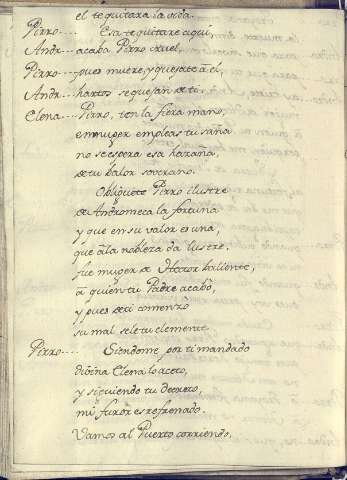 el te quitara la vida.
Pirro.... Esa te quitare aqui,
Andr... acaba Pirro cruel,
Pirro... pues muere, y quejate à ti,
Andr... hartos se quejan de ti.
Elena... Pirro, ten la fiera mano,
en muger empleas tu saña
no se espera esa hazaña,
de tu balor soverano.
Obliguete Pirro ilustre
de Andromeca la fortuna
y que en su valor es una,
que à la nobleza da lustre,
fue muger de Hector baliente,
à quien tu Padre acabò,
y pues de ti comenzò
su mal se le tu clemente.
Pirro.... Siendome por ti mandado
dibina Elena lo aceto,
y siguiendo tu decreto,
mi furor es refrenado.
Vamos al Puerto corriendo,